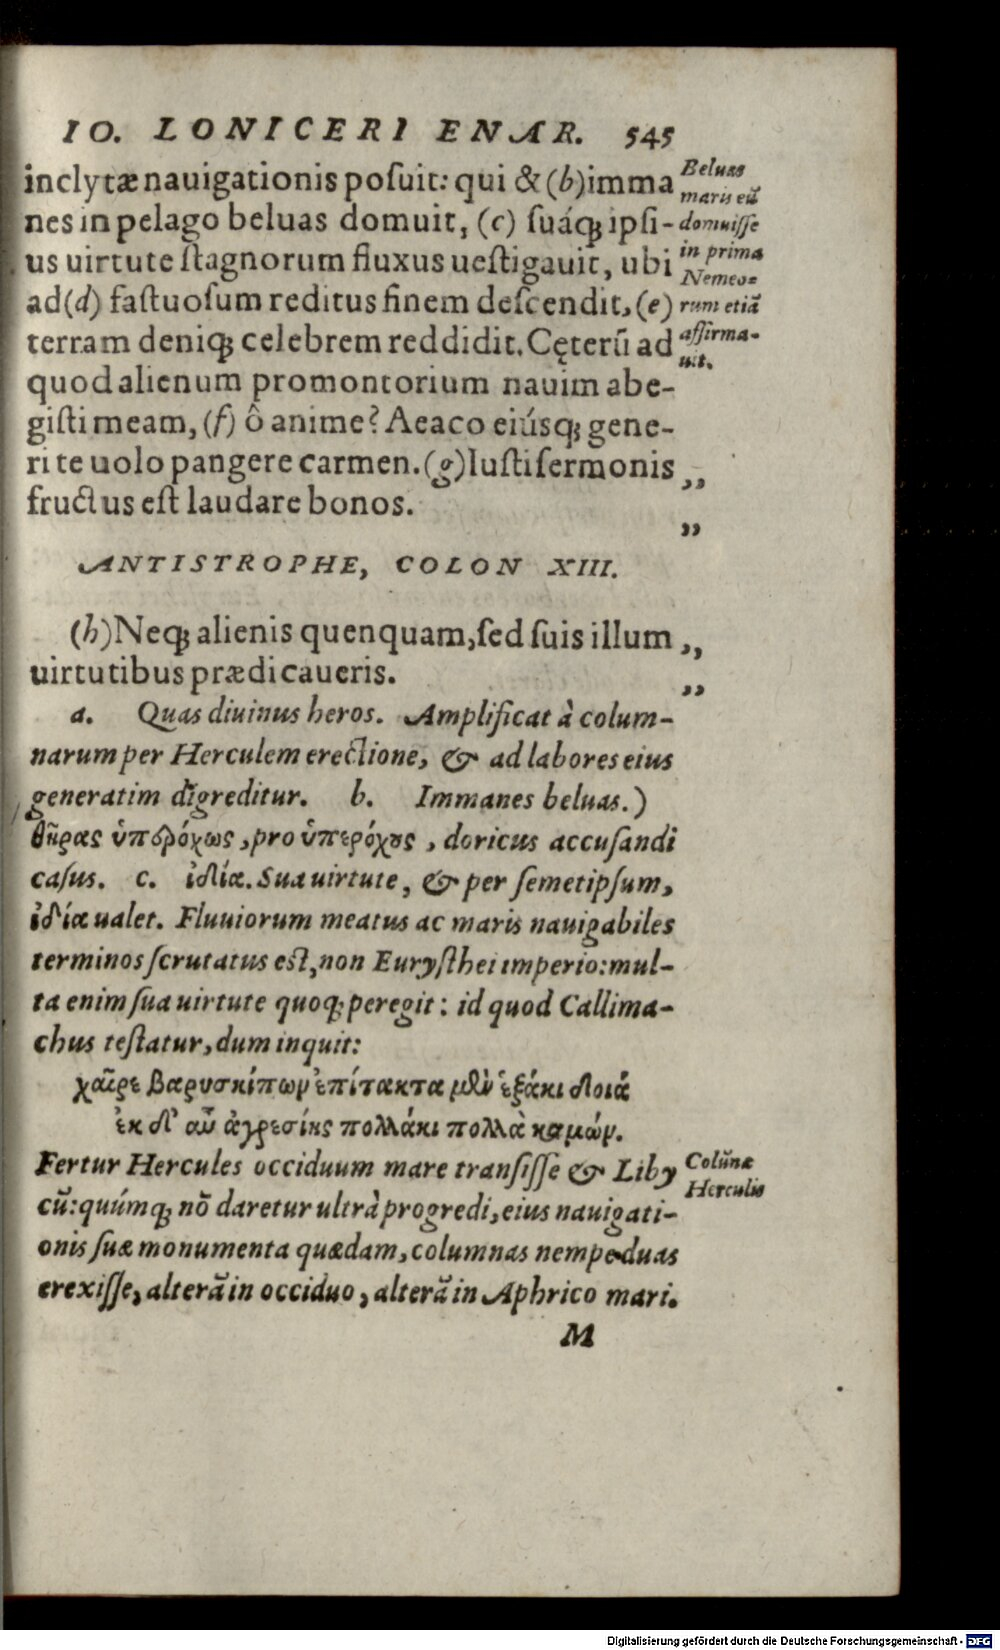 IO. LONICERI ENAR. 545
inclytæ nauigationis posuit: qui & (b)imma
nes in pelago beluas domuit, (c) suáqꝫ ipsi-
us uirtute stagnorum fluxus uestigauit, ubi
ad(d) fastuosum reditus finem descendit, (e)
terram deniqꝫ celebrem reddidit. Cęterũ ad
quod alienum promontorium nauim abe-
gisti meam, (f) ô anime? Aeaco eiúsqꝫ gene-
ri te uolo pangere carmen. (g)Iusti sermonis ,,
fructus est laudare bonos. ,,
Beluas
maris eũ
domuisse
in prima
Nemeo=
rum etiã
affirma-
uit.
ANTISTROPHE, COLON XIII.
(h)Neqꝫ alienis quenquam, sed suis illum ,,
uirtutibus prædicaueris. ,,
a. Quas diuinus heros. Amplificat à colum-
narum per Herculem erectione, & ad labores eius
generatim digreditur. b. Immanes beluas.)
θῆρας ὑπερόχως, pro ὑπερόχους, doricus accusandi
casus. c. ἰδίᾳ. Sua uirtute, & per semetipsum,
ἰδίᾳ ualet. Fluuiorum meatus ac maris nauigabiles
terminos scrutatus est, non Eurysthei imperio: mul-
ta enim sua uirtute quoqꝫ peregit: id quod Callima-
chus testatur, dum inquit:
χαῖρε βαρυσκίπων ἐπίτακτα μὲν ἑξάκι δοιά
ἐκ δ' αὖ ἀγρεσίης πολλάκι πολλὰ καμών.
Fertur Hercules occiduum mare transisse & Liby
cũ: quúmqꝫ nõ daretur ultrà progredi, eius nauigati-
onis suæ monumenta quædam, columnas nempe duas
erexisse, alterã in occiduo, alterã in Aphrico mari.
Colũnæ
Herculis
M
Digitalisierung gefördert durch die Deutsche Forschungsgemeinschaft - DFG